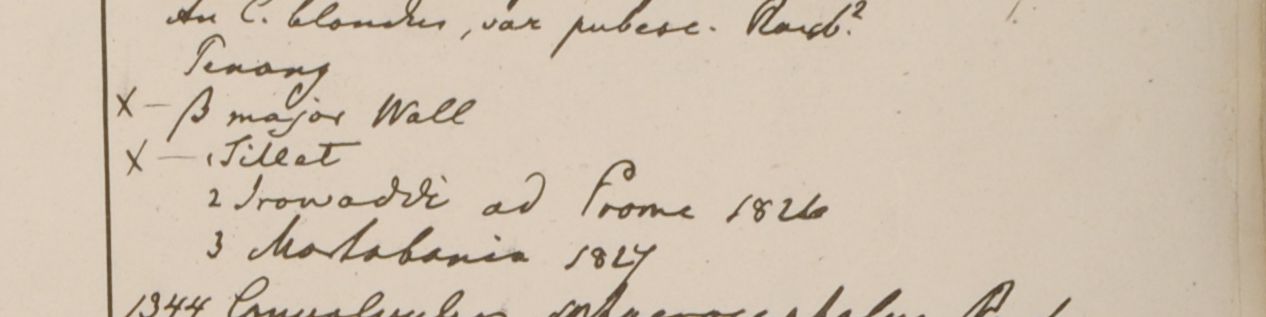 An C. blandus, var pubesc. Roxb.?
Penang
X — β major Wall
X — 1 Sillet
2 Irowaddi ad Prome 1826
3 Martabania 1827
1344 Convolvulus